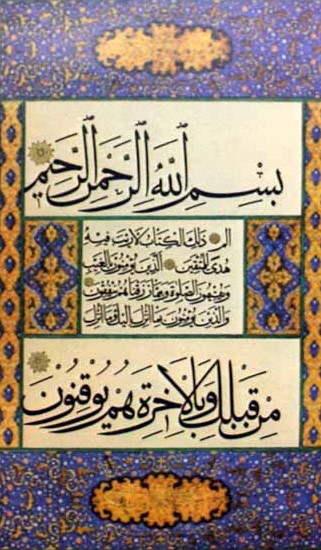 بِسْمِ اللَّهِ الرَّحْمٰنِ الرَّحِيمِ
الم ذلك الكتاب لا ريب فيه
هدى للمتقين الذين يؤمنون بالغيب
ويقيمون الصلوة ومما رزقناهم ينفقون
والذين يؤمنون بما انزل اليك وما انزل
مِنْ قَبْلِكَ وَبِالْاٰخِرَةِ هُمْ يُوقِنُونَ